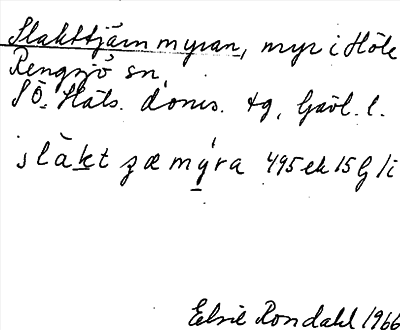 Slakttjärnmyran, myr i Höle
Rengsjö sn,
SÖ. Häls. doms. tg, Gävl. l.
slàkt zæmýra 495 ek 15 G li
Elsie Rondahl 1966